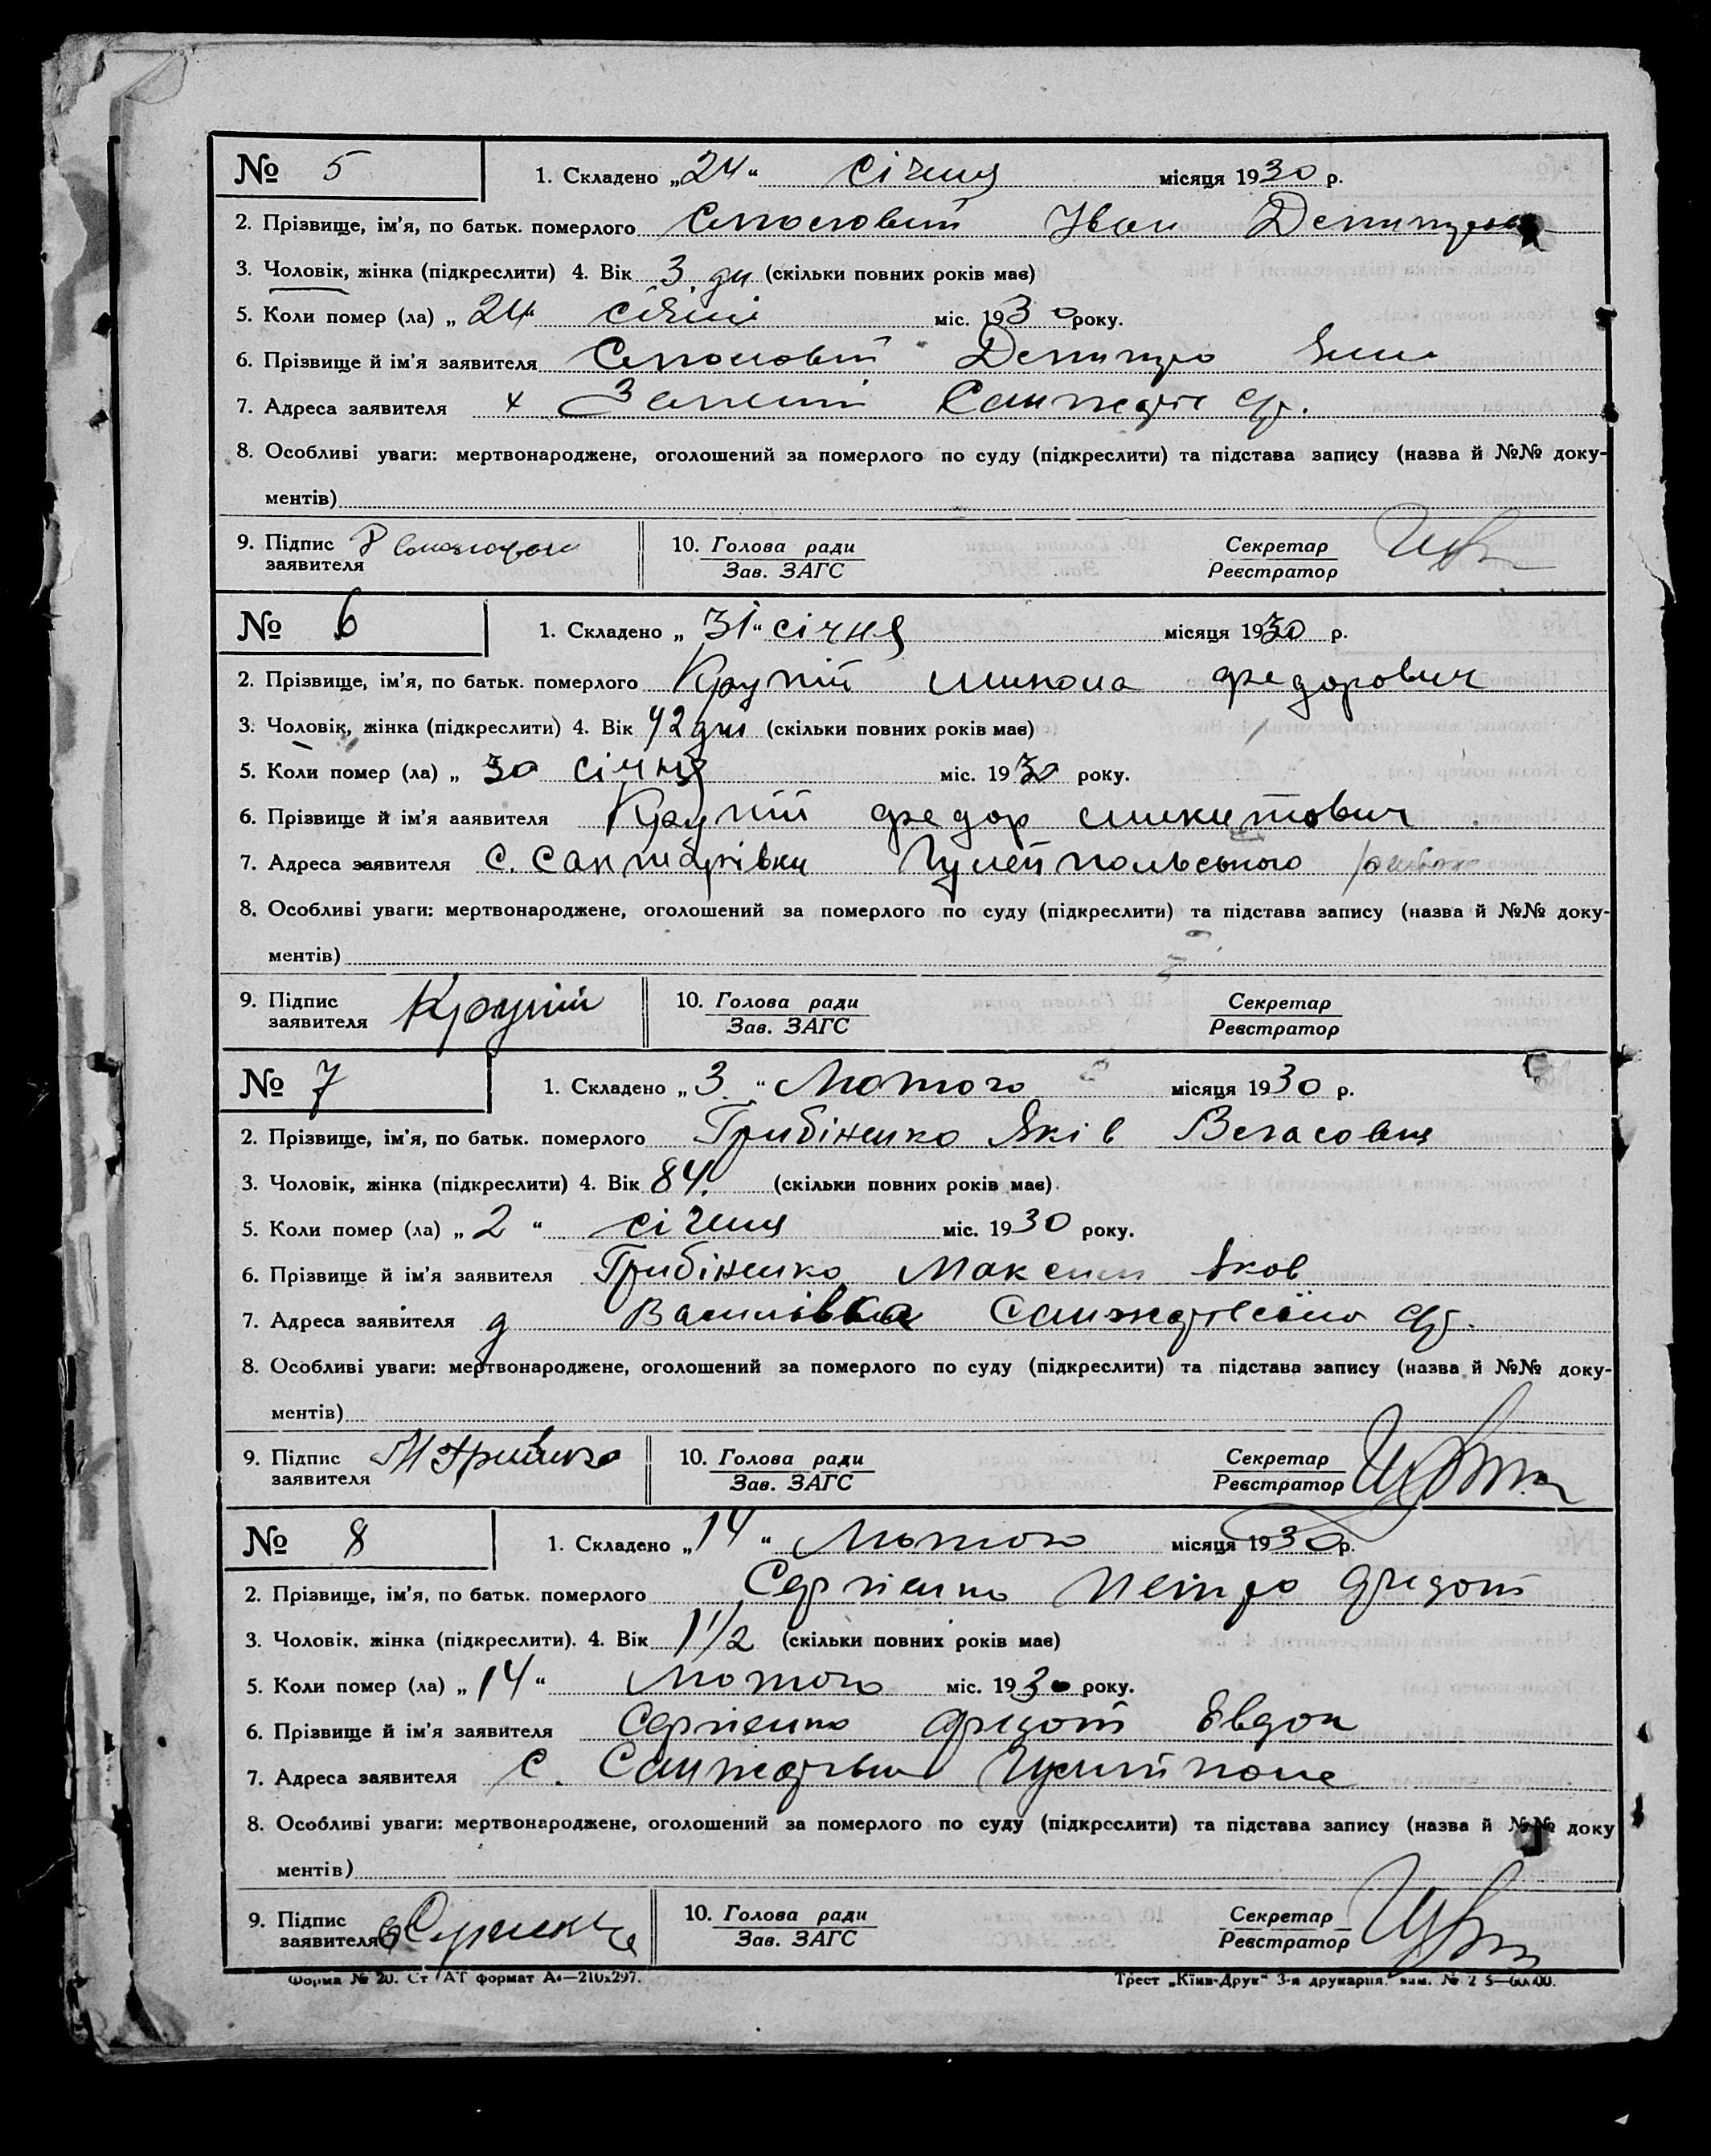 № 5 1. Складено „24“ січня місяця 1930 р.
2. Прізвище, ім'я, по батьк. померлого Іван
3. Чоловік, жінка (підкреслити) 4. Вік 3 дн (скільки повних років має)
5. Коли помер (ла) „24“ січня міс. 1930 року.
6. Прізвище й ім'я заявителя Дмитро
7. Адреса заявителя х
8. Особливі уваги: мертвонароджене, оголошений за померлого по суду (підкреслити) та підстава запису (назва й №№ доку-
ментів)
9. Підпис заявителя 10. Голова ради Зав. ЗАГС Секретар Реєстратор
№ 6 1. Складено „31“ січня місяця 1930 р.
2. Прізвище, ім'я, по батьк. померлого Крупій Микола Федорович
3. Чоловік, жінка (підкреслити) 4. Вік дні (скільки повних років має)
5. Коли помер (ла) „30 січня міс. 1930 року.
6. Прізвище й ім'я заявителя Крупій Федор Микитович
7. Адреса заявителя С. Гуляйпольського
8. Особливі уваги: мертвонароджене, оголошений за померлого по суду (підкреслити) та підстава запису (назва й №№ доку-
ментів)
9. Підпис заявителя Крупій 10. Голова ради Зав. ЗАГС Секретар Реєстратор
№ 7 1. Складено „3“ Лютого місяця 1930 р.
2. Прізвище, ім'я, по батьк. померлого Грибіненко Яків
3. Чоловік, жінка (підкреслити) 4. Вік 84. (скільки повних років має).
5. Коли помер (ла) „2“ січня міс. 1930 року.
6. Прізвище й ім'я заявителя Грибіненко Максим Яков
7. Адреса заявителя
8. Особливі уваги: мертвонароджене, оголошений за померлого по суду (підкреслити) та підстава запису (назва й №№ доку-
ментів)
9. Підпис заявителя 10. Голова ради Зав. ЗАГС Секретар Реєстратор
№ 8 1. Складено „14“ Лютого місяця 1930 р.
2. Прізвище, ім'я, по батьк. померлого Сергієнко Петро Федот
3. Чоловік, жінка (підкреслити). 4. Вік 1 1/2 (скільки повних років має)
5. Коли помер (ла) „14“ Лютого міс. 1930 року.
6. Прізвище й ім'я заявителя Сергієнко Федот Евдок
7. Адреса заявителя С.
8. Особливі уваги: мертвонароджене, оголошений за померлого по суду (підкреслити) та підстава запису (назва й №№ доку
ментів)
9. Підпис заявителя 10. Голова ради Зав. ЗАГС Секретар Реєстратор
Форма № 20. формат А4—210х297. Трест „Київ-Друк“ 3-я друкарня.